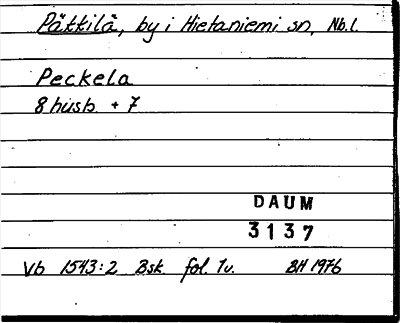 Päkkilä, by i Hietaniemi sn, Nb.l.
Peckela
8 husb. + 7
DAUM
3137
Vb 1543:2 Bsk. fol. 7v. BH 1976